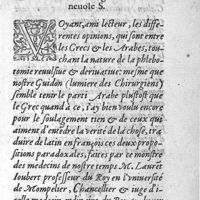 neuole S.
VOyant, ami lecteur, les diffe-
rentes opinions, qui sont entre
les Grecs & les Arabes, tou-
chant la nature de la phlebo-
tomie reuulsiue & deriuatiue: mesme que
nostre Guidon (lumiere des Chirurgiens)
semble tenir le parti Arabe plustost que
le Grec quand à ce, i'ay bien voulu pour
le soulagement tien & de ceux qui
aiment d'entẽdre la verité de la chose, tra
duire de latin en françois ces deux propo-
sitions paradoxales, faites par le monstre
des medecins de nostre temps M. Laurẽt
Ioubert professeur du Roy en l'vniuersité
de Mompelier, Chancellier & iuge d'i-